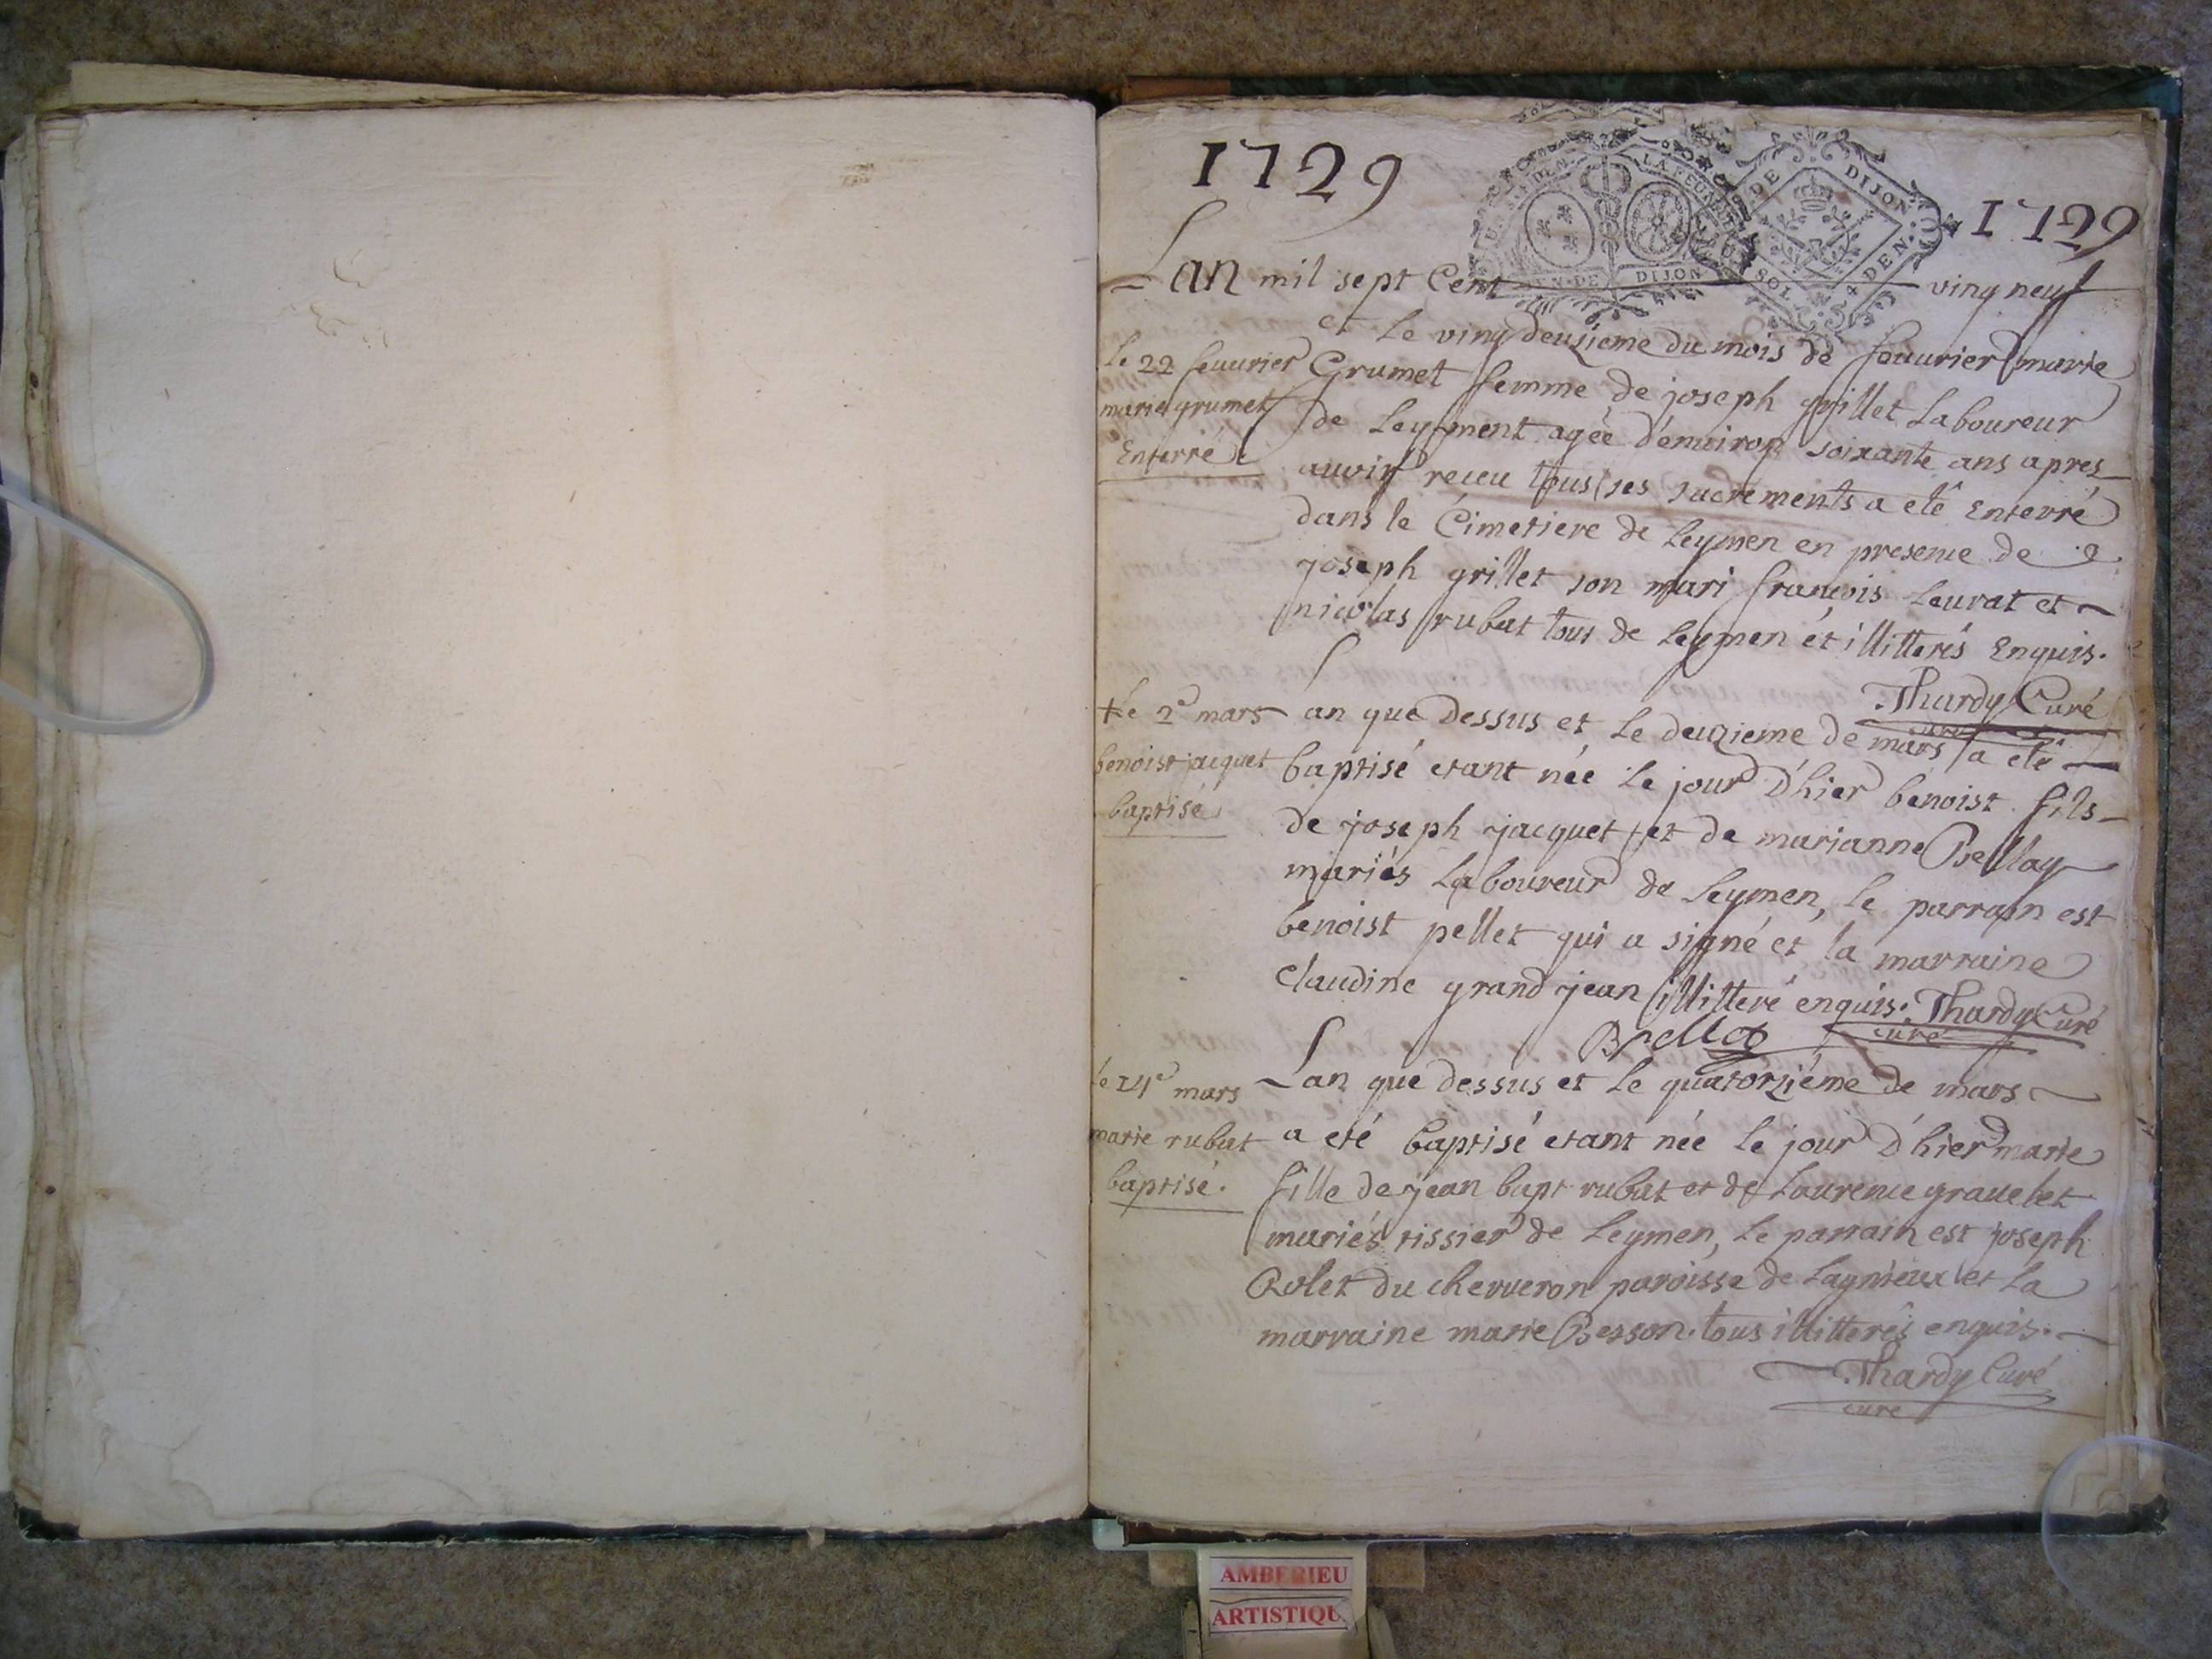 1729
1729
U. S. 4 DEN.
LA FEUILLE
DEN. DE DIJON
DE DIJON
SOL. 4 DEN.
Lan mil sept Cent vingneuf
et le vingdeuzieme du mois de feuurier marie
le 22 feuurier
marie grumet
Enterré
Grumet femme de joseph grillet Laboureur
de Leyment agée d'enuiron soixante ans apres
auoir receu tous ses sacrements a eté Enterré
dans le Cimetiere de Leymen en presence de
joseph grillet son mari françois Leurat et
nicolas rubat tous de Leymen et illitterés Enquis.
Thardy Curé
curé
le 2e mars
benoist jacquet
baptisé
Lan que Dessus et Le deuzieme de mars a eté
baptisé etant née Le jour D'hier benoist fils
de joseph jacquet et de marianne Bellay
mariés Laboureur de Leymen, le parrain est
benoist pellet qui a signé et la marraine
Claudine grand jean illitteré enquis. Thardy Curé
curé
Bpellet
le 14e mars
marie rubat
baptisé.
Lan que dessus et Le quatorziéme de mars
a eté baptisé etant née Le jour D'hier marie
fille de jean bapt rubat et de Laurence grauelet
mariés tissier de Leymen, Le parrain est joseph
Rolet du chevveron paroisse de Lagnieux et La
marraine marie Besson. tous illitterés enquis.
Thardy Curé
curé
AMBERIEU
ARTISTIQU